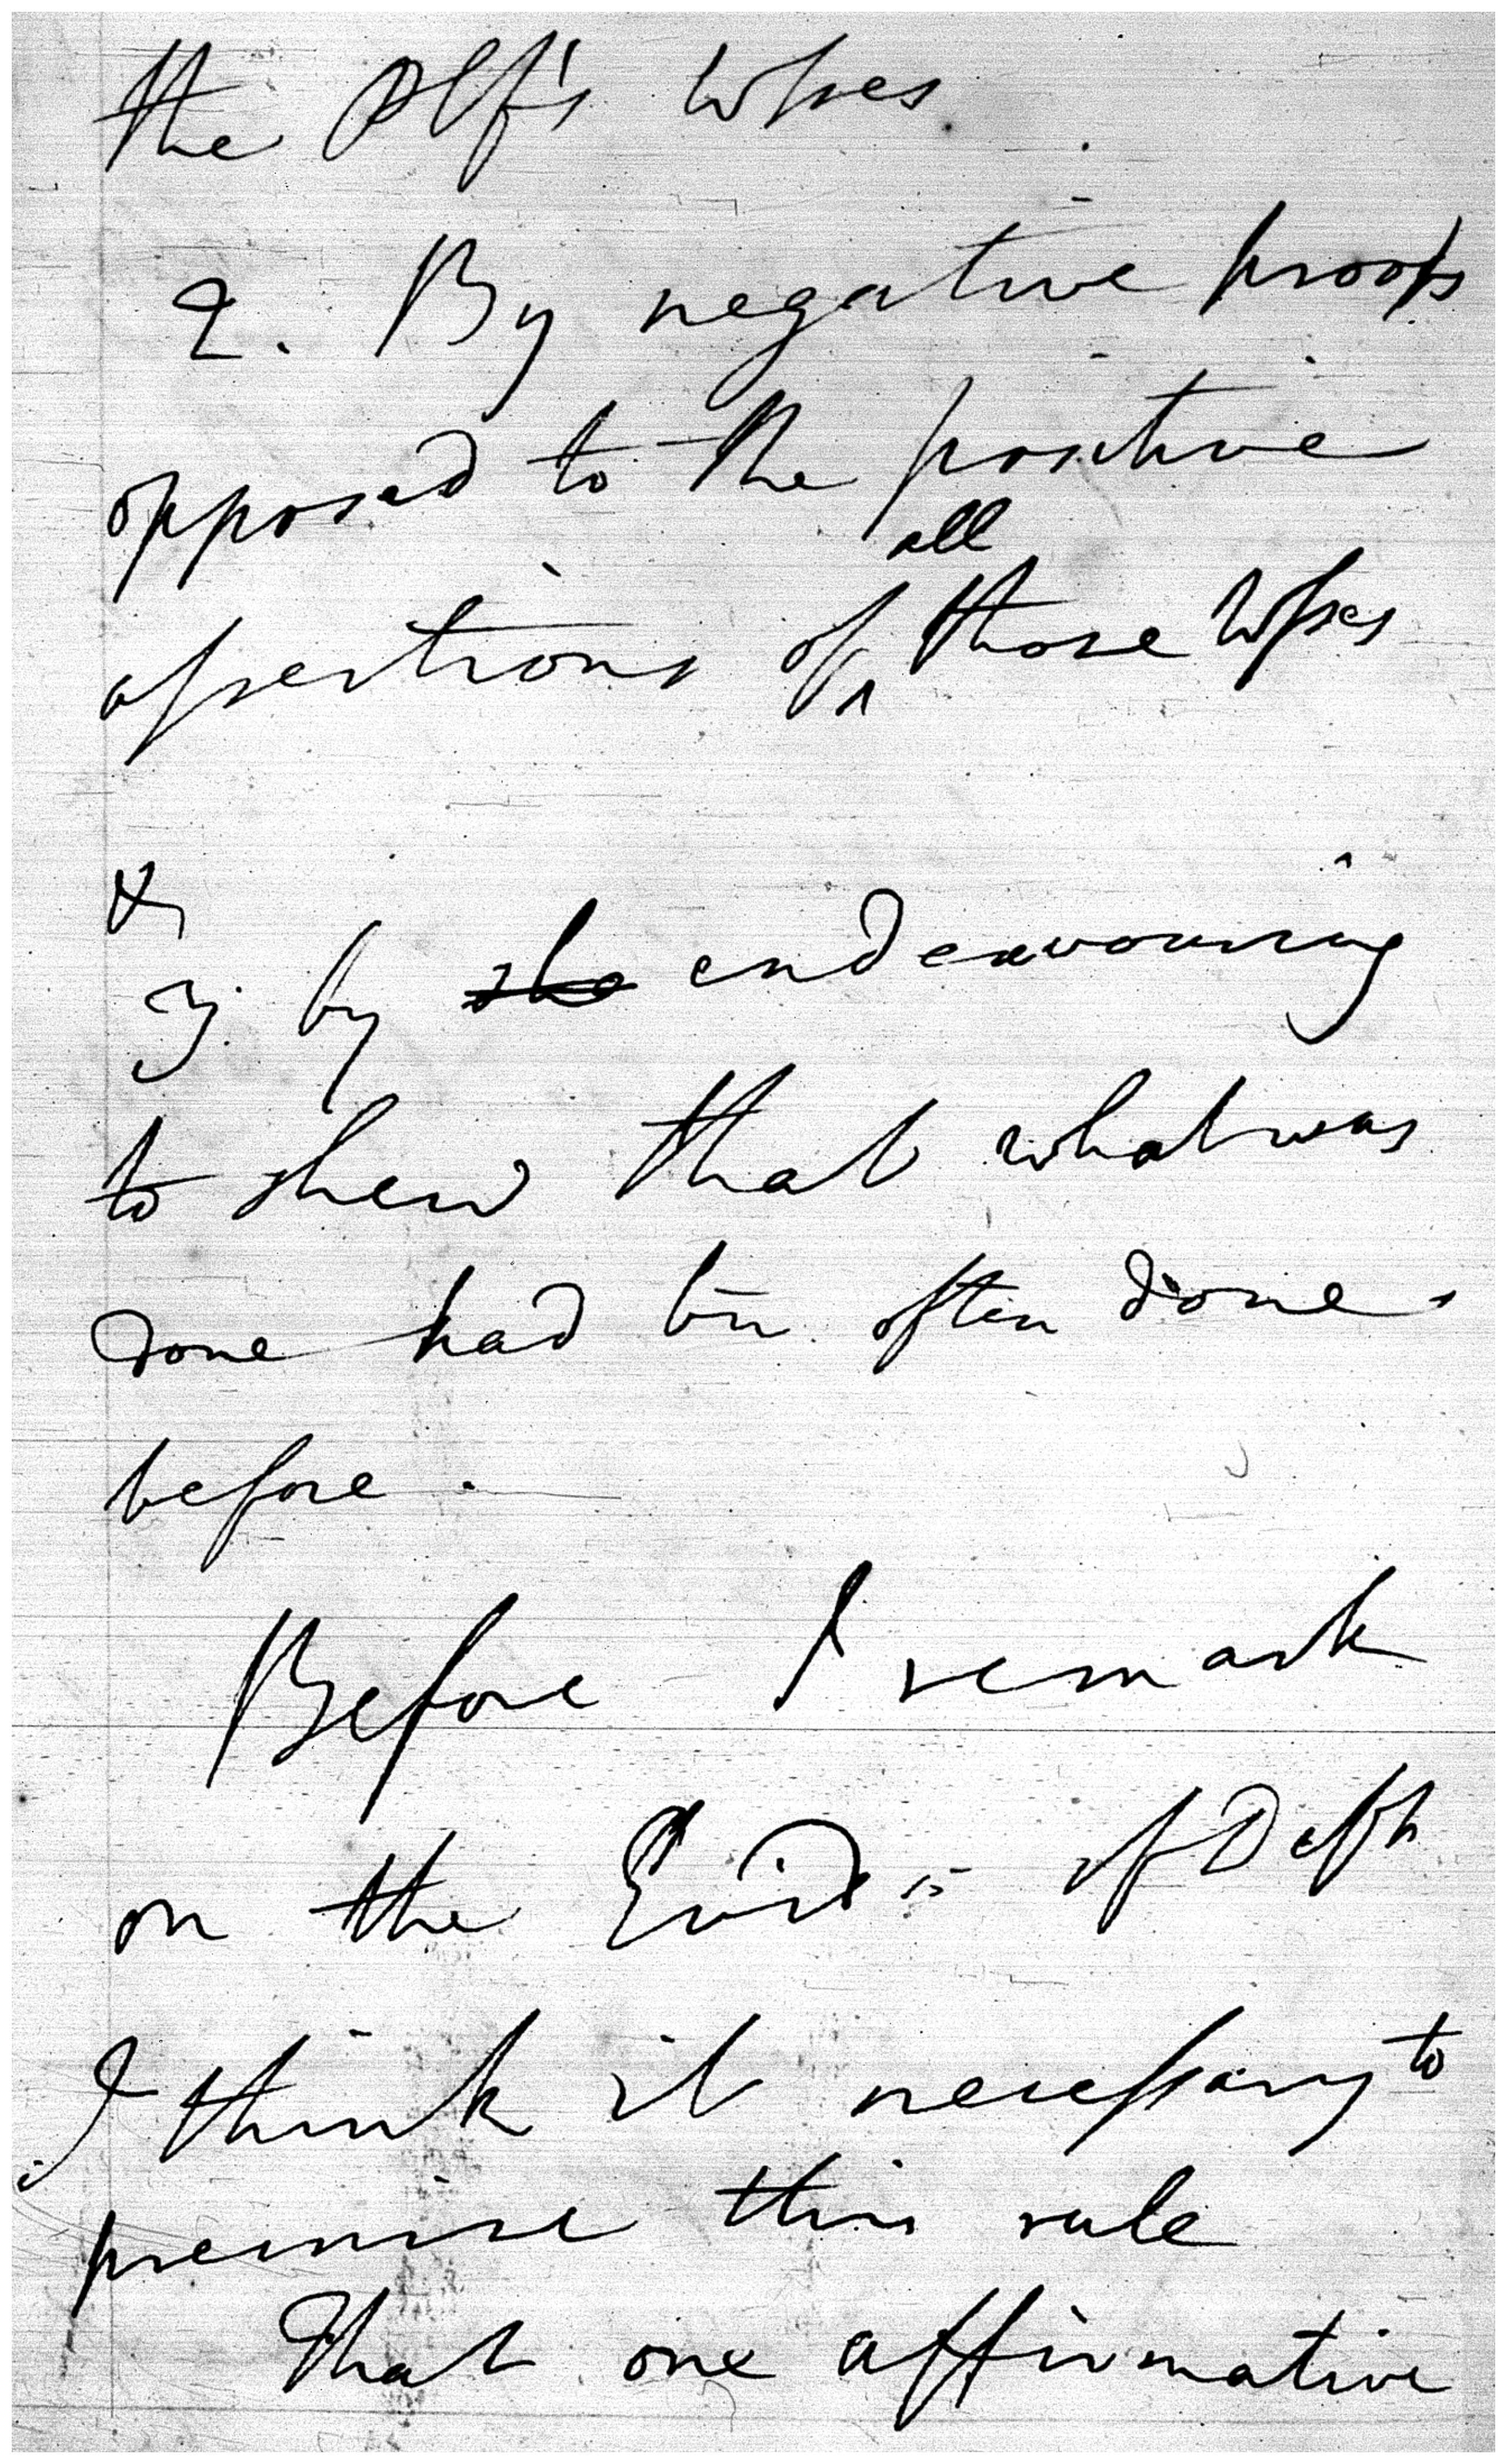 the Plf's Wsses
2. By negative proofs
opposed to the positive
all
assertions of ^ those Wsses
&
3. by she endeavouring
to shew that what was
done had bīn often done
before.
Before I remark
on the Evid: of Deft
I think it necessary to
premise this rule
That one affirmative